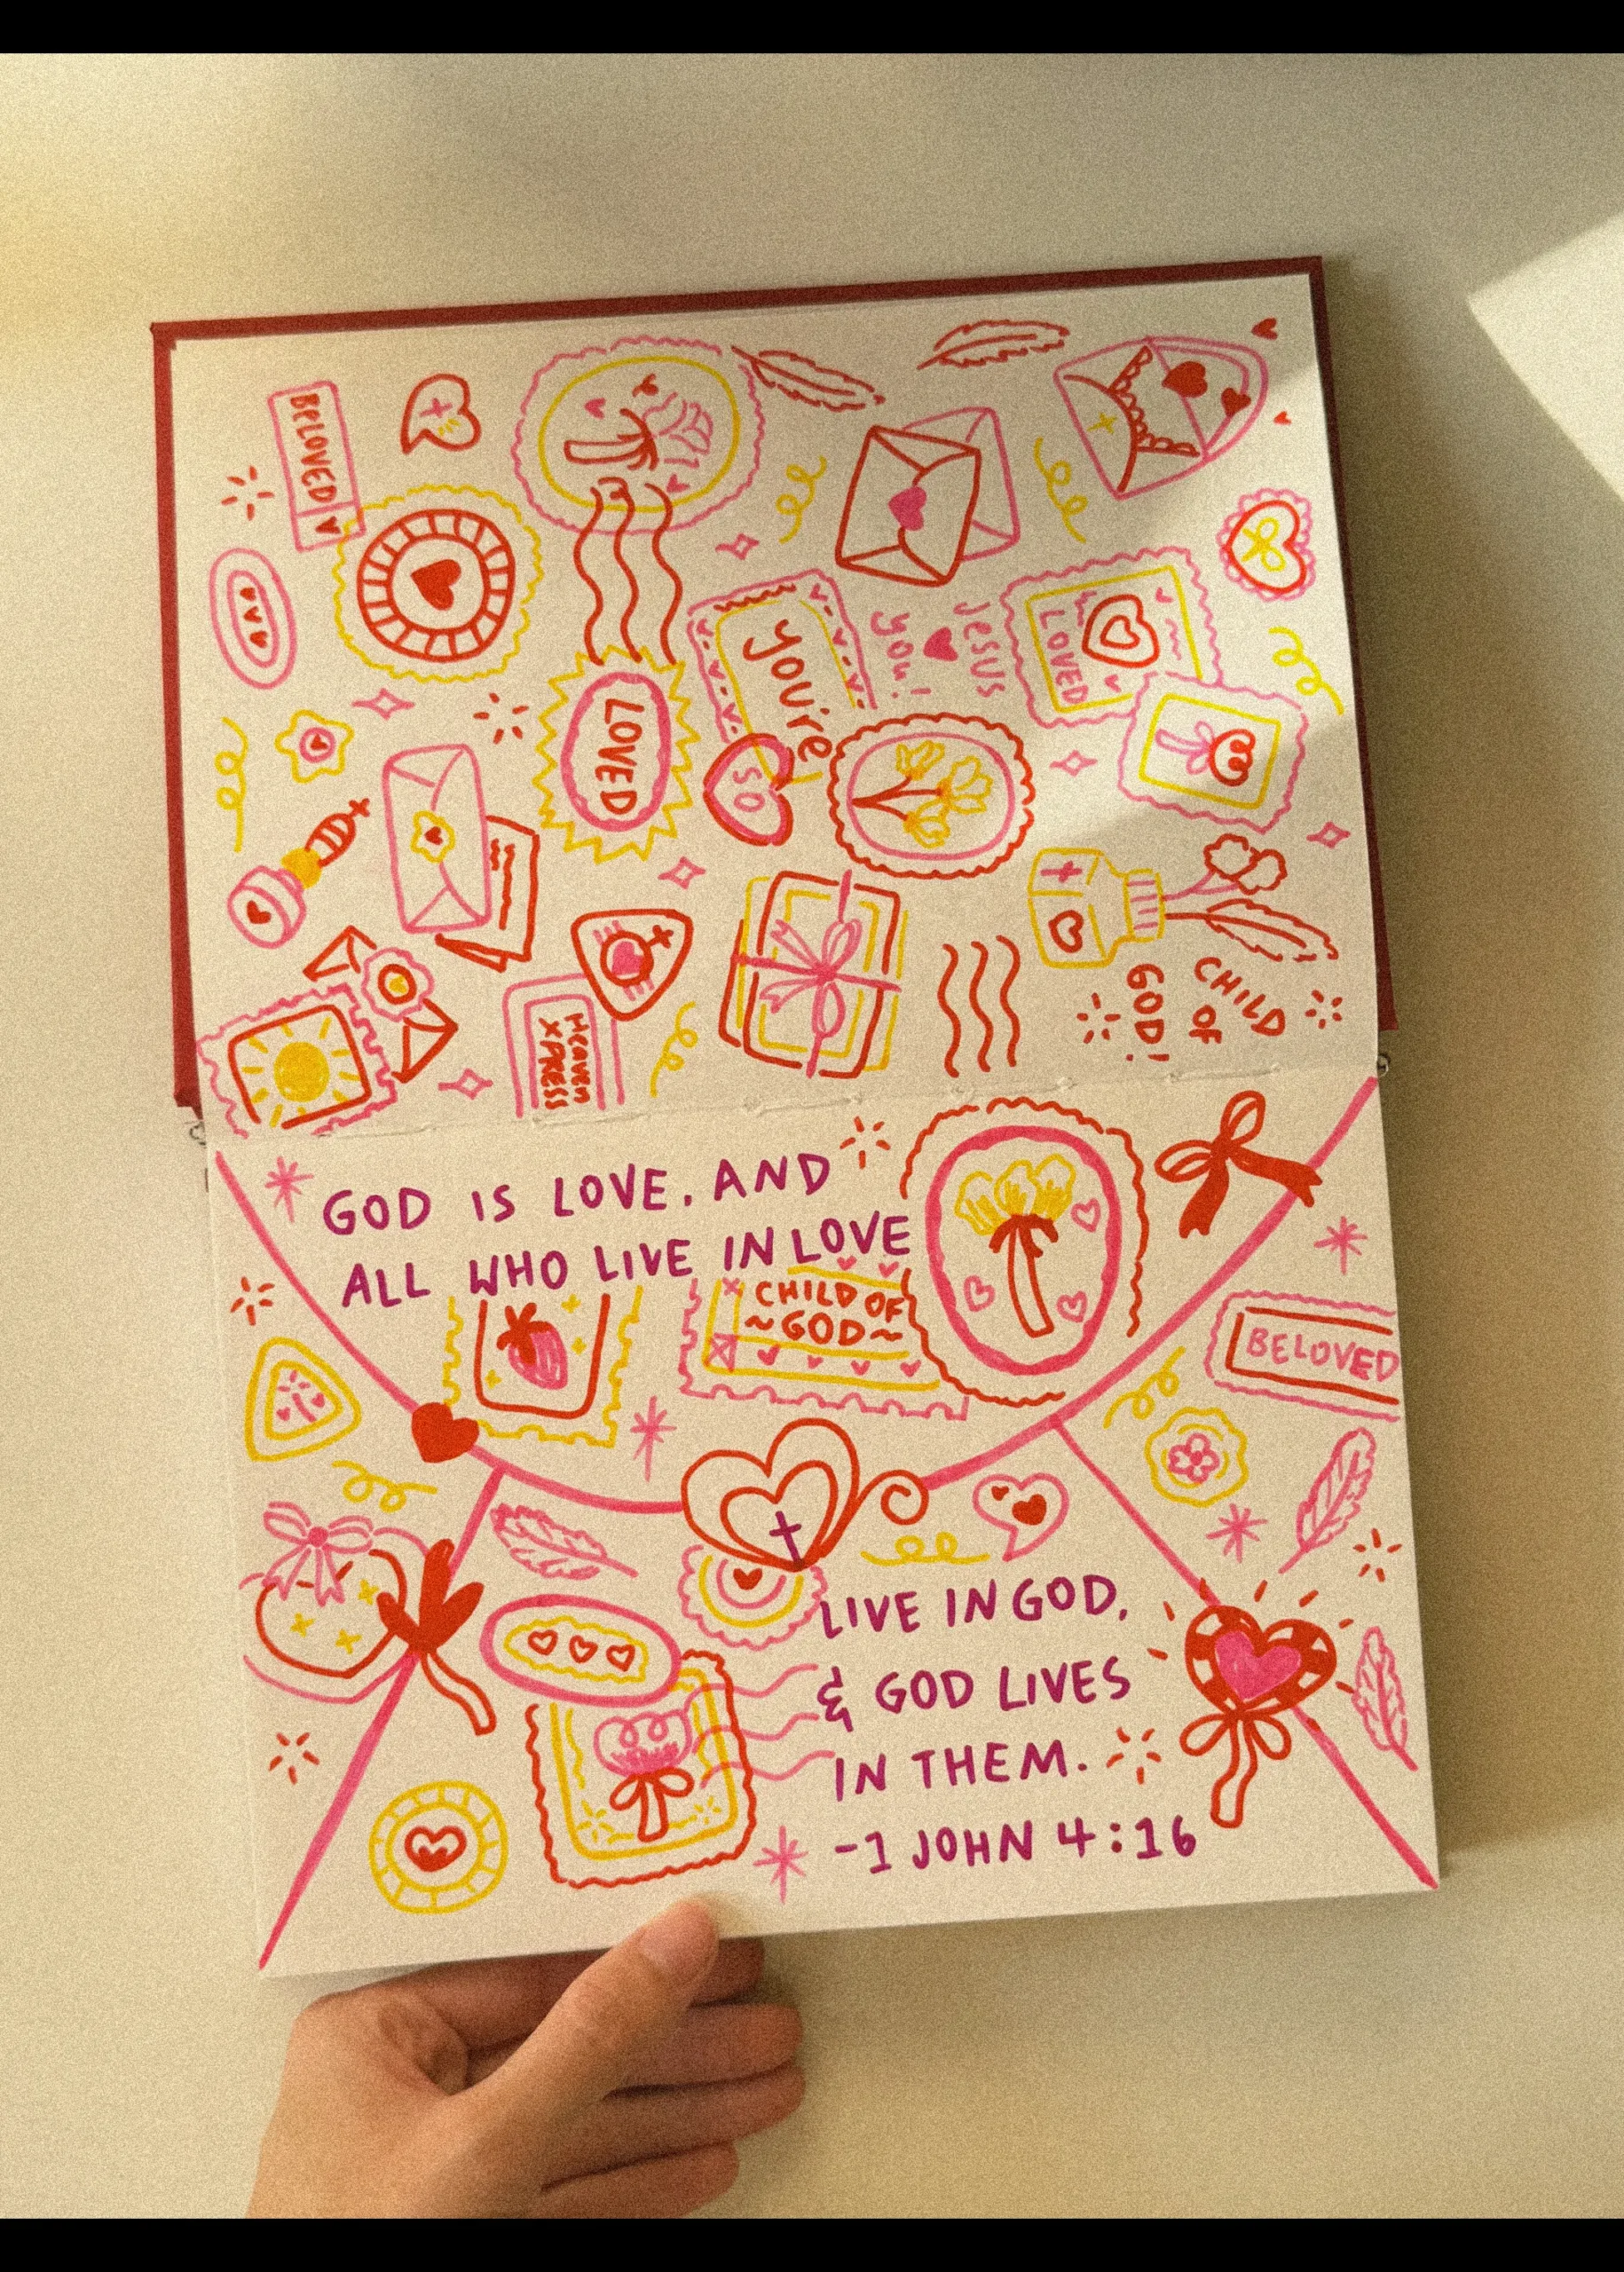 BELOVED
LOVED
YOU'RE
SO
JESUS
♥
YOU!
LOVED
HEAVEN
XPRESS
CHILD
OF
GOD!
GOD IS LOVE, AND
ALL WHO LIVE IN LOVE
CHILD OF
~GOD~
BELOVED
LIVE IN GOD,
& GOD LIVES
IN THEM.
-1 JOHN 4:16